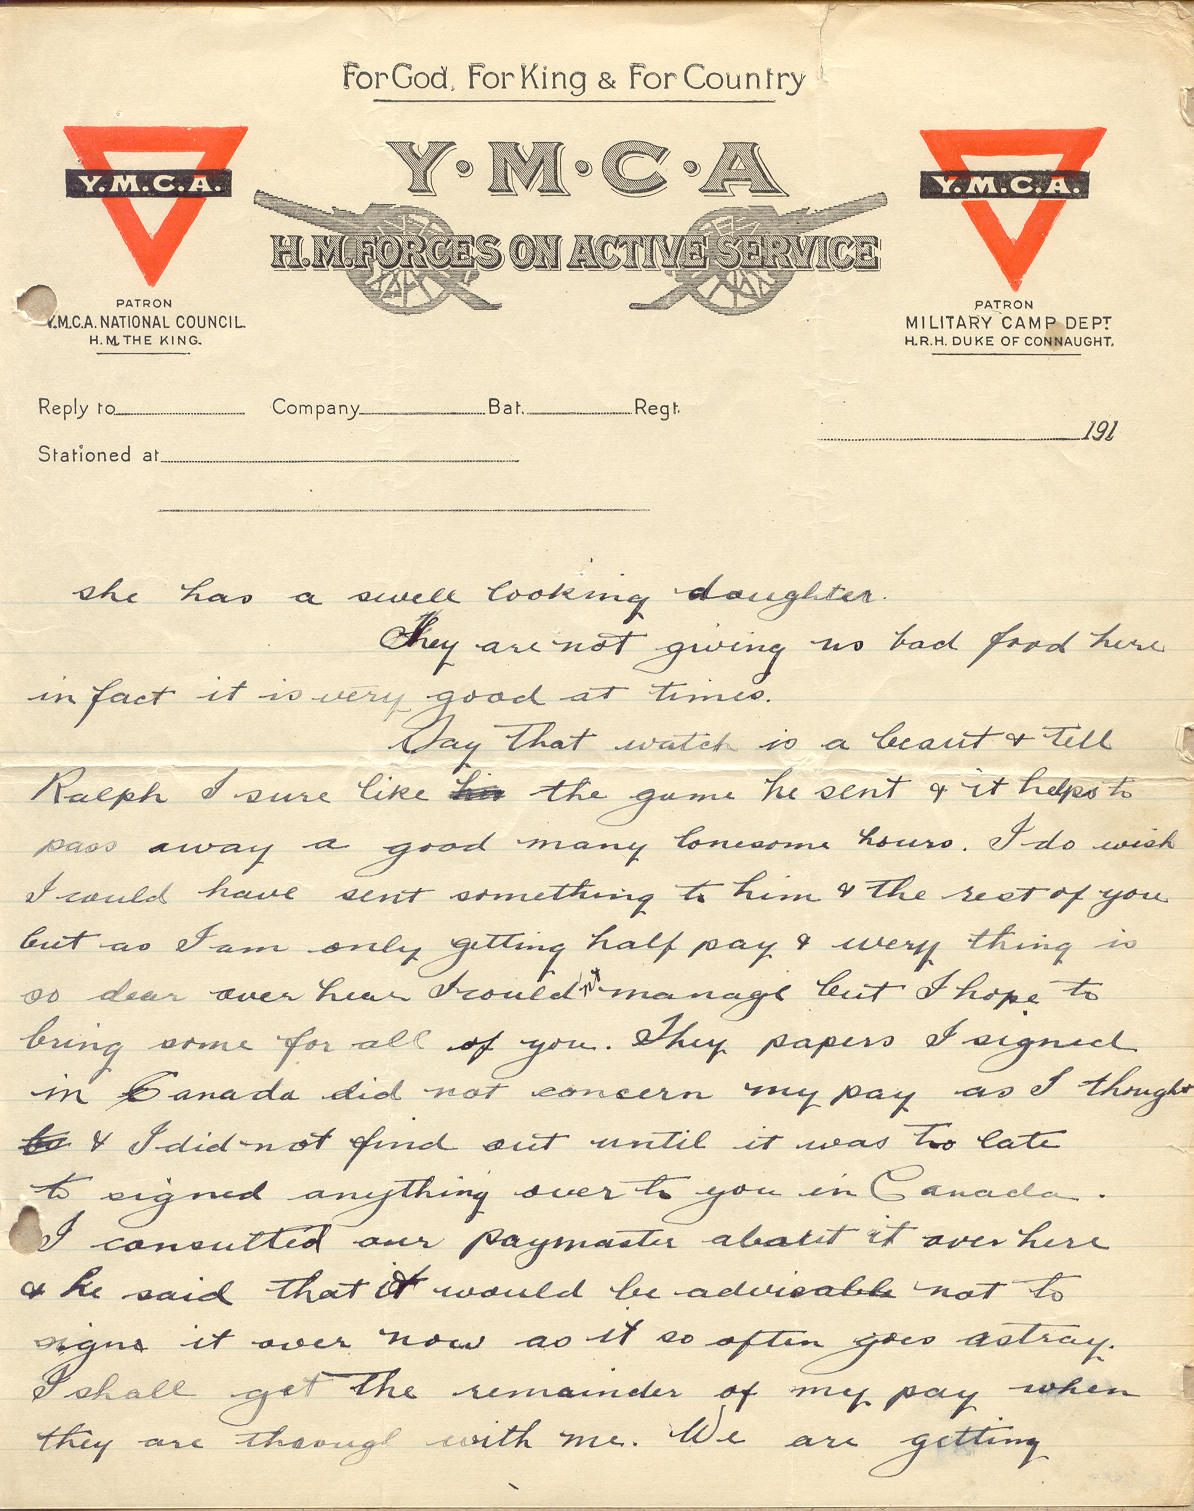 For God, For King & For Country
Y·M·C·A
H.M. FORCES ON ACTIVE SERVICE
Y.M.C.A.
PATRON
Y.M.C.A. NATIONAL COUNCIL.
H.M. THE KING.
Y.M.C.A.
PATRON
MILITARY CAMP DEPT.
H.R.H. DUKE OF CONNAUGHT.
Reply to Company Bat. Regt.
191
Stationed at
she has a swell looking daughter.
They are not giving us bad food here
in fact it is very good at times.
Say that watch is a beaut & tell
Ralph I sure like the game he sent & it helps to
pass away a good many lonesome hours. I do wish
I could have sent something to him & the rest of you
but as I am only getting half pay & every thing is
so dear over hear I could n't manage but I hope to
bring some for all of you. They papers I signed
in Canada did not concern my pay as I thought
& I did not find out until it was to late
to signed anything over to you in Canada.
I consulted our paymaster about it over here
& he said that it would be advisable not to
signe it over now as it so often goes astray.
I shall get the remainder of my pay when
they are through with me. We are getting